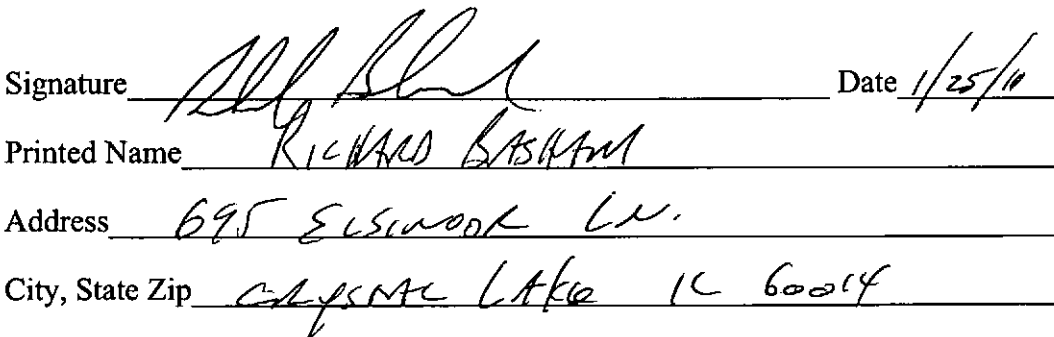 Signature Date 1/25/10
Printed Name RICHARD BASHAM
Address 695 ELSINOOR LN.
City, State Zip CRYSTAL LAKE IL 60014